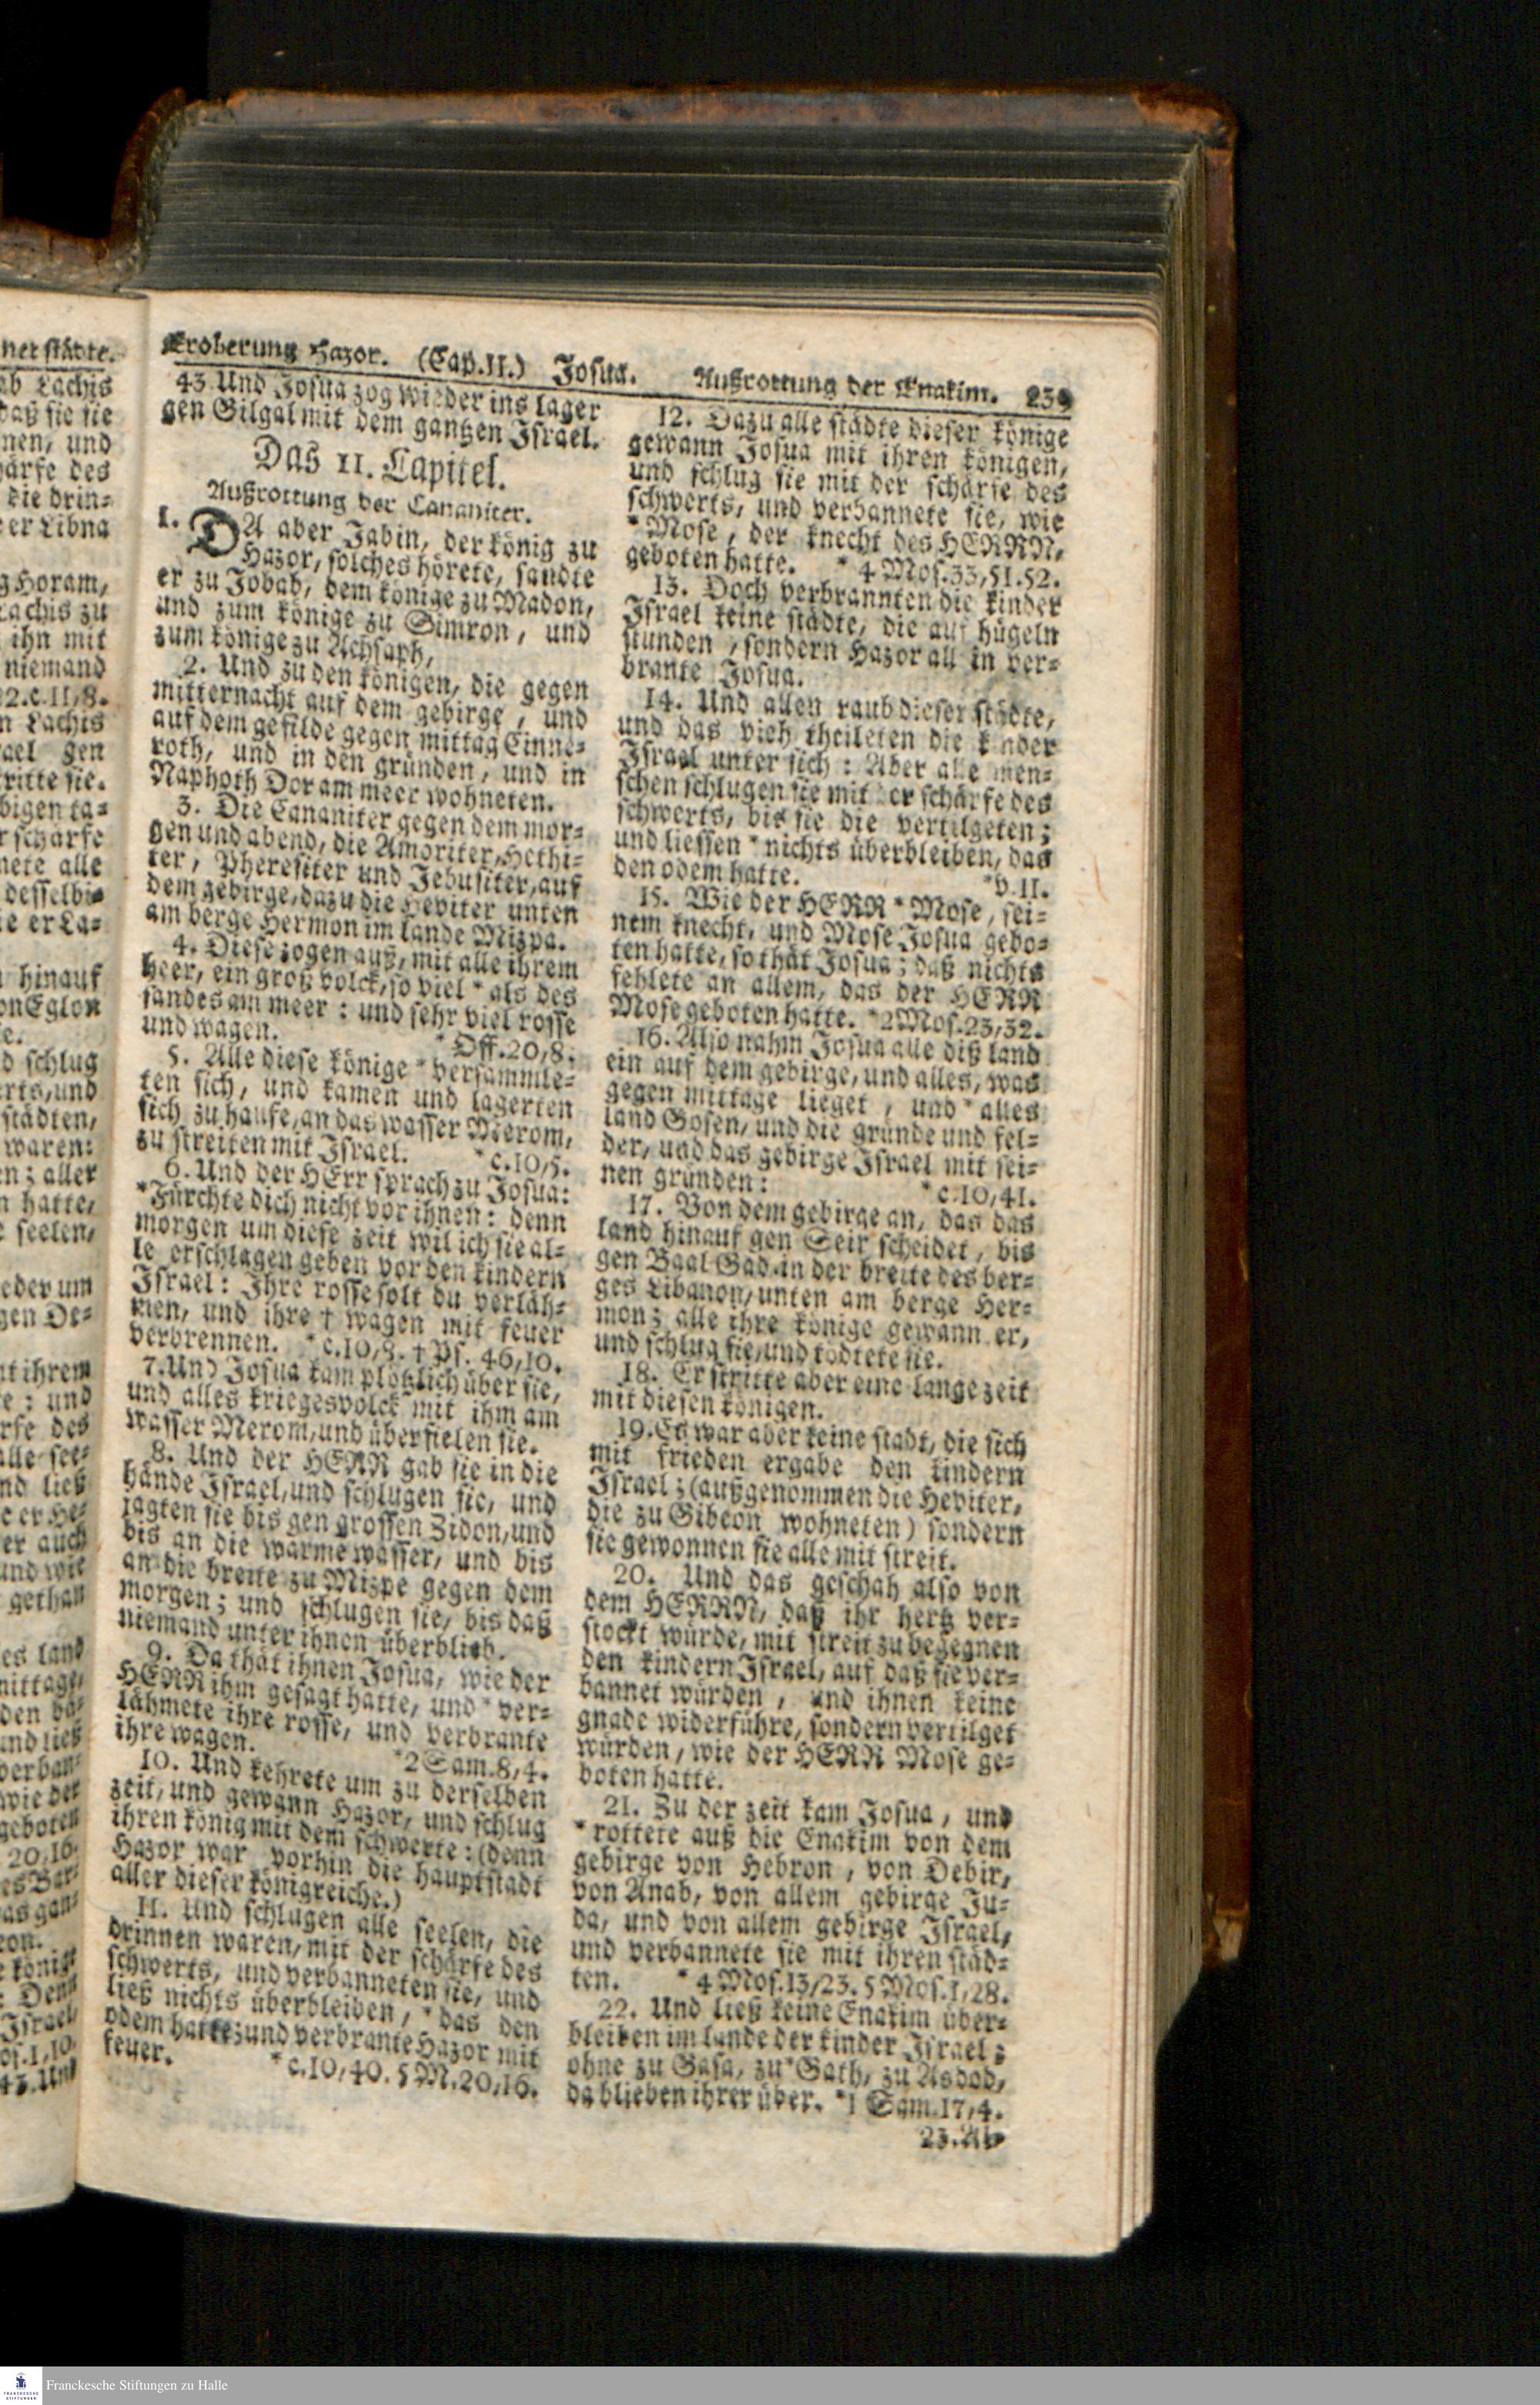 Eroberung Hazor. (Cap.11.) Josua. Außrottung der Enakim. 239
43 Und Josua zog wieder ins lager
gen Gilgal mit dem gantzen Israel.
Das 11. Capitel.
Außrottung der Cananiter.
1. DA aber Jabin, der könig zu
Hazor, solches hörete, sandte
er zu Jobab, dem könige zu Madon,
und zum könige zu Simron, und
zum könige zu Achsaph,
2. Und zu den königen, die gegen
mitternacht auf dem gebirge, und
auf dem gefilde gegen mittag Cinne-
roth, und in den gründen, und in
Naphoth Dor am meer wohneten.
3. Die Cananiter gegen dem mor-
gen und abend, die Amoriter, Hethi-
ter, Pheresiter und Jebusiter, auf
dem gebirge, dazu die Heviter unten
am berge Hermon im lande Mizpa.
4. Diese zogen auß, mit alle ihrem
heer, ein groß volck, so viel * als des
sandes am meer: und sehr viel rosse
und wagen. * Off.20,8.
5. Alle diese könige * versammle-
ten sich, und kamen und lagerten
sich zu haufe, an das wasser Merom,
zu streiten mit Israel. *c.10,5.
6. Und der HErr sprach zu Josua:
*Fürchte dich nicht vor ihnen: denn
morgen um diese zeit wil ich sie al-
le erschlagen geben vor den kindern
Israel: Ihre rosse solt du verläh-
men, und ihre † wagen mit feuer
verbrennen. *c.10,8. † Ps. 46,10.
7. Und Josua kam plötzlich über sie,
und alles kriegesvolck mit ihm am
wasser Merom, und überfielen sie.
8. Und der HERR gab sie in die
hände Israel, und schlugen sie, und
jagten sie bis gen grossen Zidon, und
bis an die warme wasser, und bis
an die breite zu Mizpe gegen dem
morgen; und schlugen sie, bis daß
niemand unter ihnen überblieb.
9. Da thät ihnen Josua, wie der
HERR ihm gesagt hatte, und * ver-
lähmete ihre rosse, und verbrante
ihre wagen. *2 Sam.8,4.
10. Und kehrete um zu derselben
zeit, und gewann Hazor, und schlug
ihren könig mit dem schwerte: (denn
Hazor war vorhin die hauptstadt
aller dieser königreiche.)
11. Und schlugen alle seelen, die
drinnen waren, mit der schärfe des
schwerts, und verbanneten sie, und
ließ nichts überbleiben, * das den
odem hatte; und verbrante Hazor mit
feuer. *c.10,40. 5 M.20,16.
12. Dazu alle städte dieser könige
gewann Josua mit ihren königen,
und schlug sie mit der schärfe des
schwerts, und verbannete sie, wie
* Mose, der knecht des HERRN,
geboten hatte. * 4 Mos.33,51.52.
13. Doch verbrannten die kinder
Israel keine städte, die auf hügeln
stunden, sondern Hazor allein ver-
brante Josua.
14. Und allen raub dieser städte,
und das vieh theileten die kinder
Israel unter sich: Aber alle men-
schen schlugen sie mit der schärfe des
schwerts, bis sie die vertilgeten;
und liessen * nichts überbleiben, das
den odem hatte. *v.11.
15. Wie der HERR * Mose, sei-
nem knecht, und Mose Josua gebo-
ten hatte, so thät Josua; daß nichts
fehlete an allem, das der HERR
Mose geboten hatte. *2 Mos.23,32.
16. Also nahm Josua alle diß land
ein auf dem gebirge, und alles, was
gegen mittage lieget, und * alles
land Gosen, und die gründe und fel-
der, und das gebirge Israel mit sei-
nen gründen: *c.10,41.
17. Von dem gebirge an, das das
land hinauf gen Seir scheidet, bis
gen Baal Gad in der breite des ber-
ges Libanon, unten am berge Her-
mon; alle ihre könige gewann er,
und schlug sie, und tödtete sie.
18. Er stritte aber eine lange zeit
mit diesen königen.
19. Es war aber keine stadt, die sich
mit frieden ergabe den kindern
Israel; (außgenommen die Heviter,
die zu Gibeon wohneten) sondern
sie gewonnen sie alle mit streit.
20. Und das geschah also von
dem HERRN, daß ihr hertz ver-
stockt würde, mit streit zu begegnen
den kindern Israel, auf daß sie ver-
bannet würden, und ihnen keine
gnade widerführe, sondern vertilget
würden, wie der HERR Mose ge-
boten hatte.
21. Zu der zeit kam Josua, und
* rottete auß die Enakim von dem
gebirge von Hebron, von Debir,
von Anab, von allem gebirge Ju-
da, und von allem gebirge Israel,
und verbannete sie mit ihren städ-
ten. * 4 Mos.13,23. 5 Mos.1,28.
22. Und ließ keine Enakim über-
bleiben im lande der kinder Israel;
ohne zu Gasa, zu * Gath, zu Asdod,
da blieben ihrer über. *1 Sam.17,4.
23. Al-
Franckesche Stiftungen zu Halle